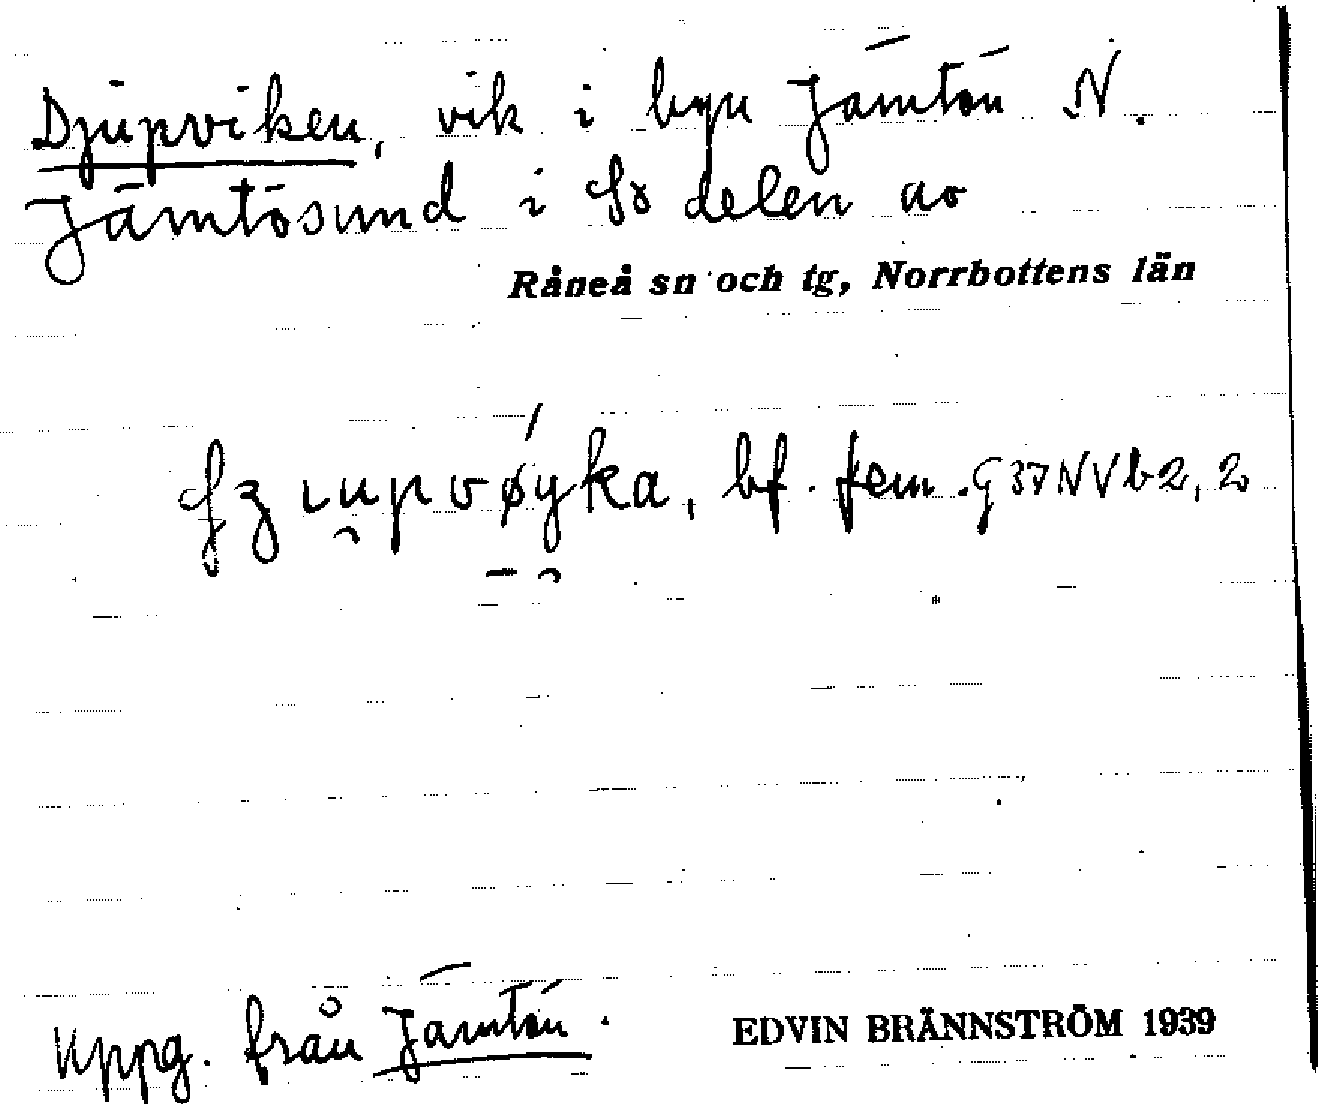 Djupviken, vik i byn Jämtön N.
Jämtösund i sö delen av
Råneå sn och tg, Norrbottens län
bf. fem. G37NVb2,2
Uppg. från Jämtön.
EDVIN BRÄNNSTRÖM 1939